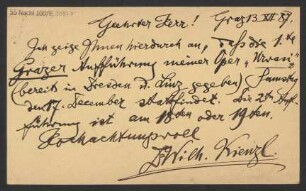 Geehrter Herr! Graz 13. XII. 87.
Ich zeige Ihnen hierdurch an, daß die 1.te
Grazer Aufführung meiner Oper „Urvasi"
(bereits in Dresden u. Linz gegeben) Samstag
den 17. December stattfindet. Die 2te Auf-
führung ist am 18ten oder 19ten.
Hochachtungsvoll
Dr Wilh. Kienzl.